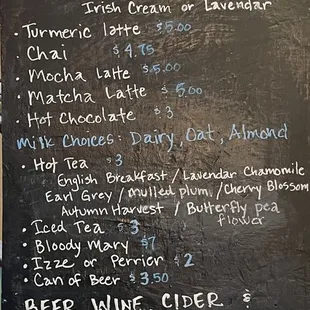 Irish Cream or Lavendar
• Turmeric latte $5.00
• Chai $4.75
• Mocha Latte $5.00
• Matcha Latte $5.00
• Hot Chocolate $3
Milk Choices: Dairy, Oat, Almond
• Hot Tea $3
English Breakfast / Lavendar Chamomile
Earl Grey / mulled plum / Cherry Blossom
Autumn Harvest / Butterfly pea
flower
• Iced Tea $3
• Bloody Mary $7
• Izze or Perrier $2
• Can of Beer $3.50
BEER, WINE, CIDER &